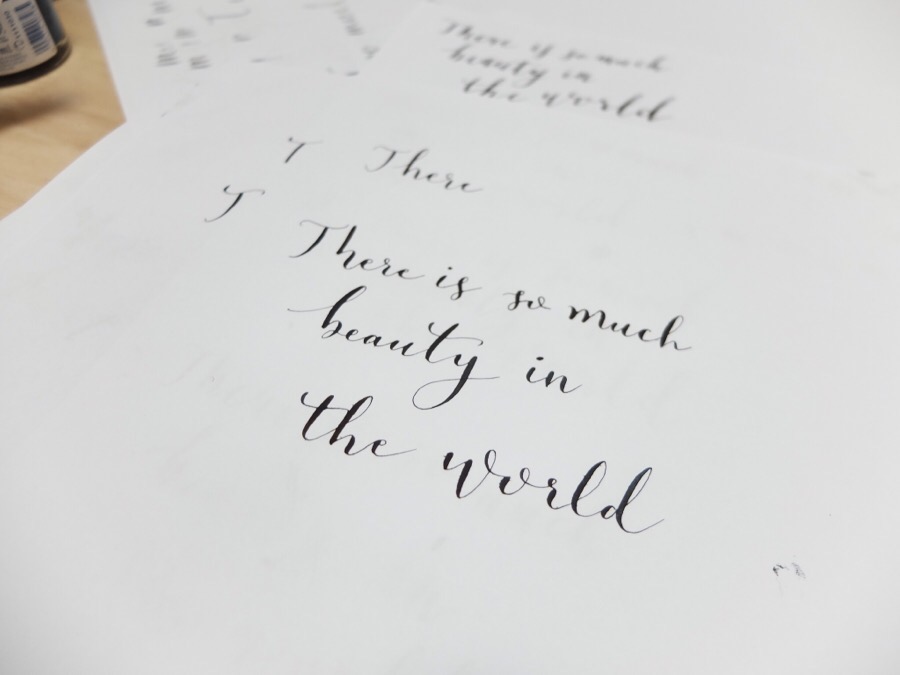 There is so much
beauty in
the world
T There
T
There is so much
beauty in
the world